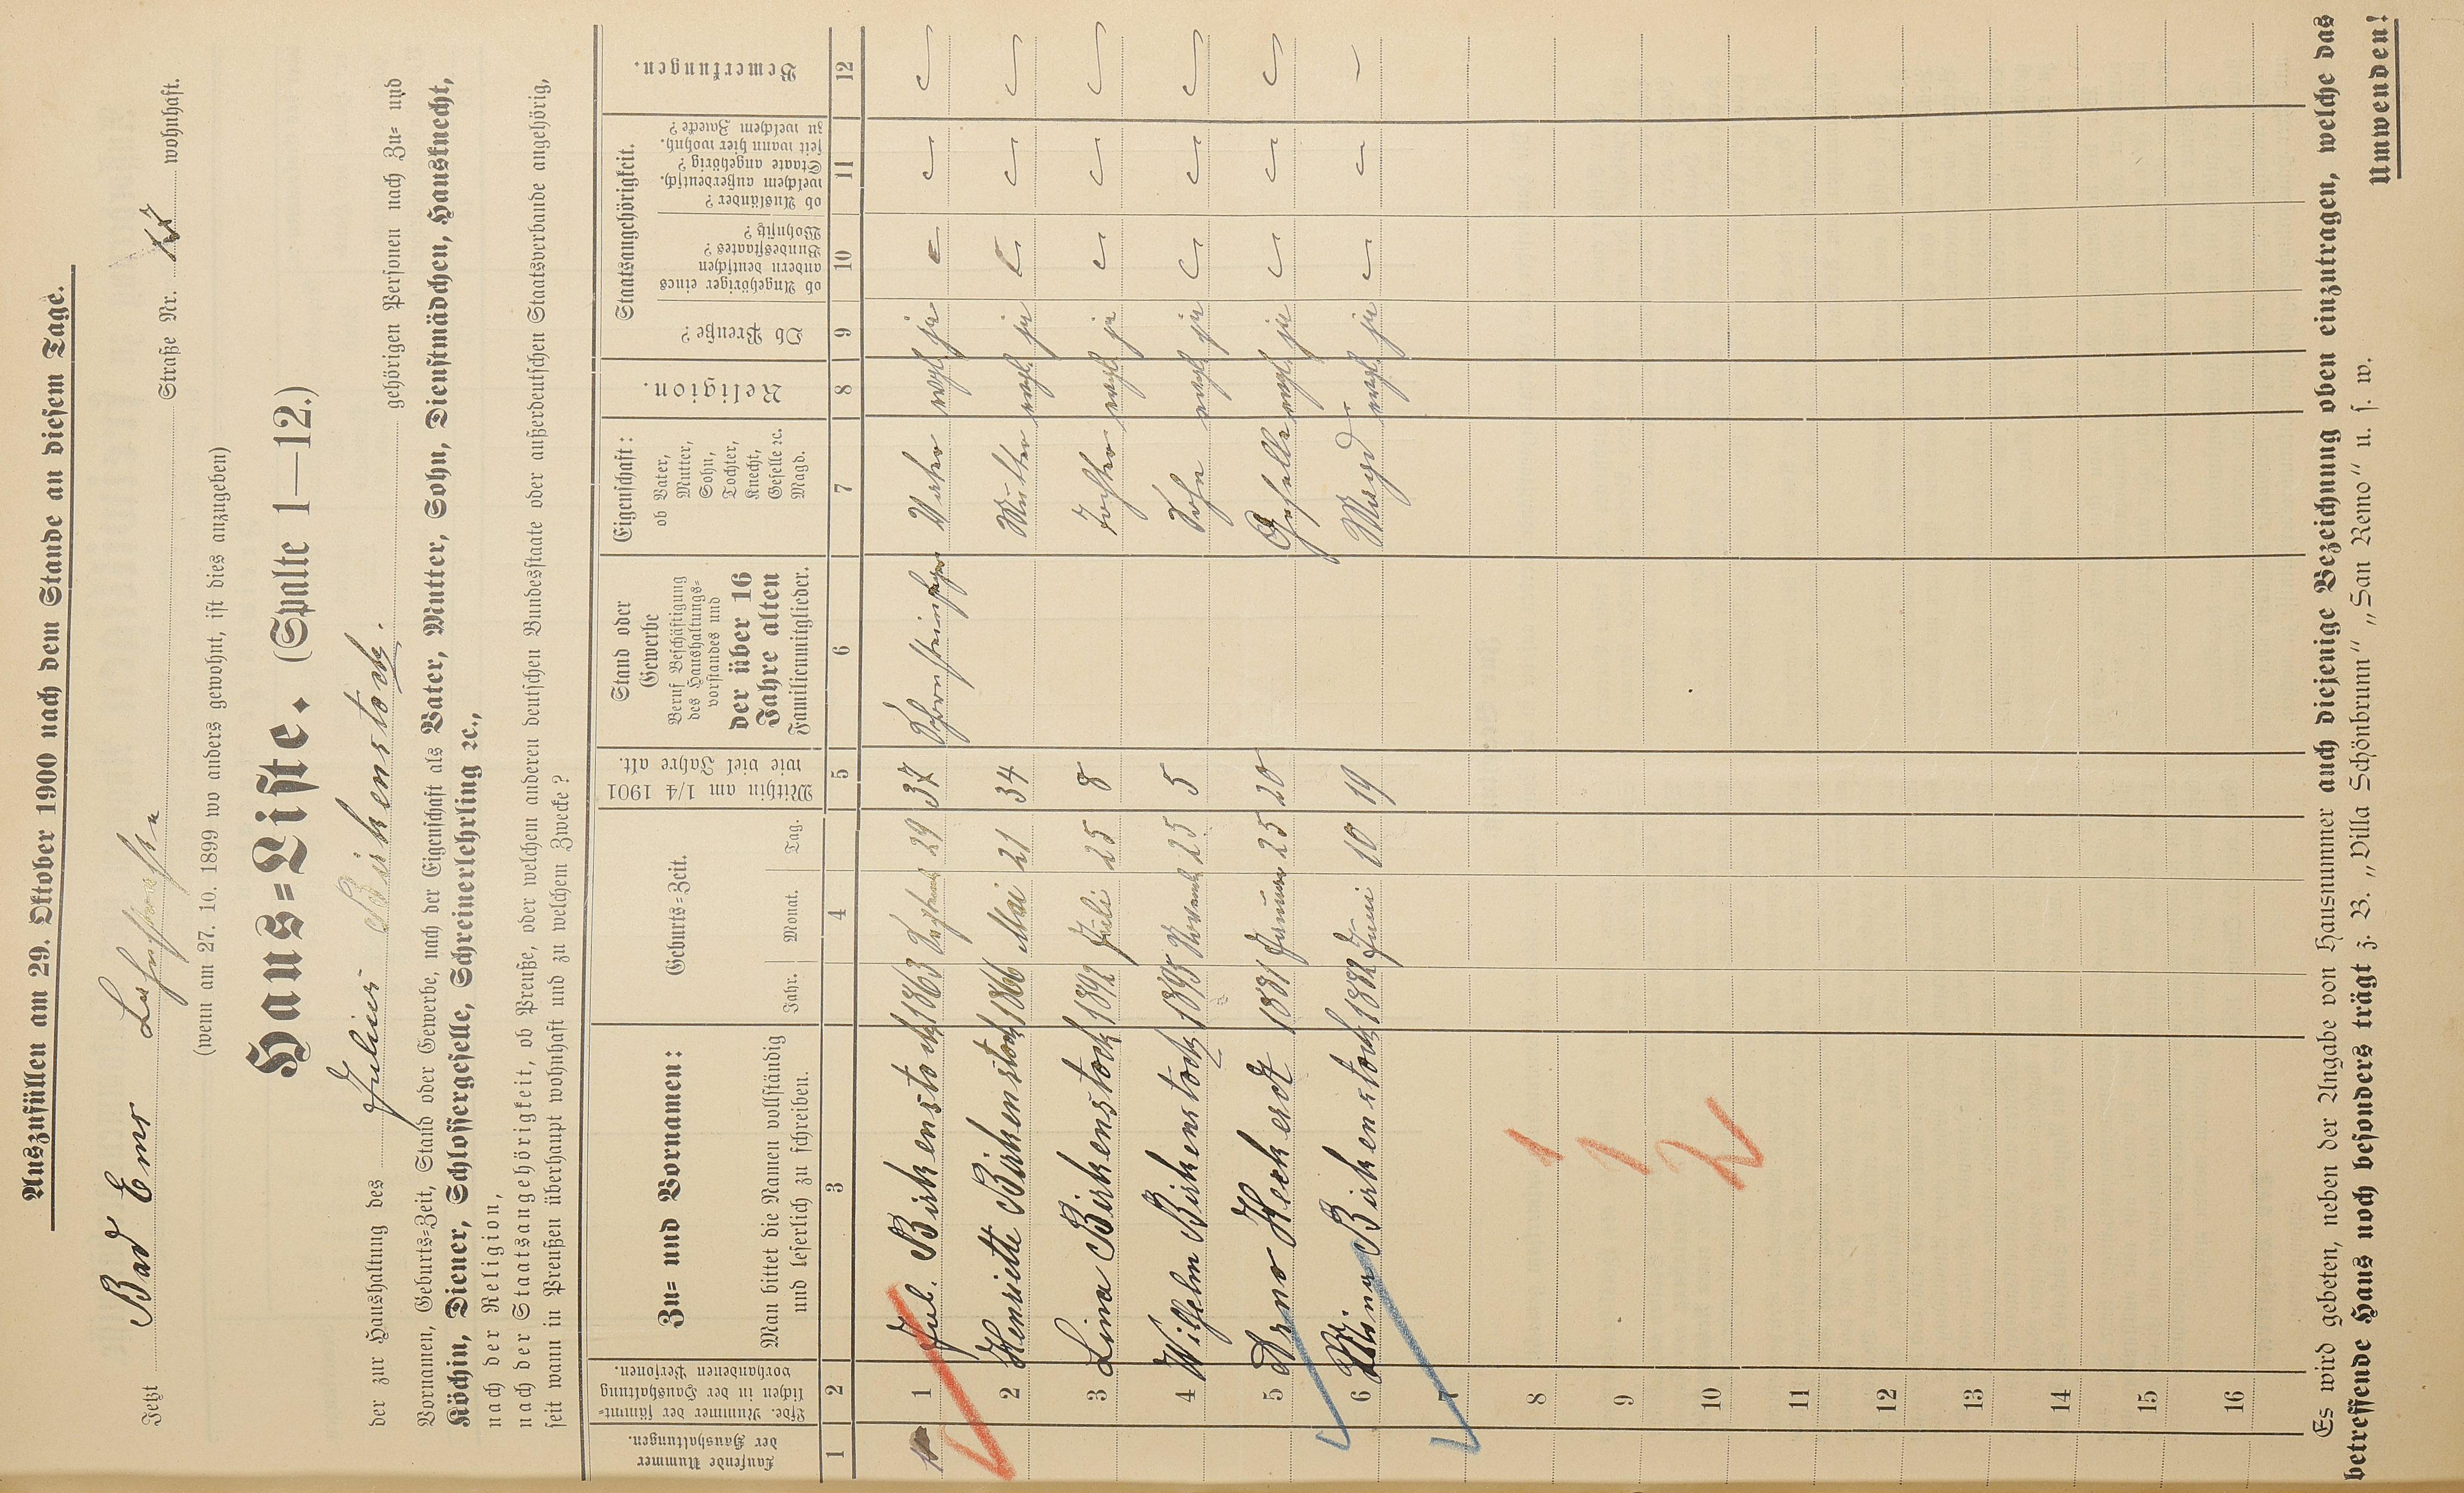 Auszufüllen am 29. Oktober 1900 nach dem Stande an diesem Tage.
Jetzt Bad Ems Straße Nr. wohnhaft.
(wenn am 27. 10. 1899 wo anders gewohnt, ist dies anzugeben)
Haus=Liste. (Spalte 1—12.)
der zur Haushaltung des Julius Birkenstock. gehörigen Personen nach Zu= und
Vornamen, Geburts=Zeit, Stand oder Gewerbe, nach der Eigenschaft als Vater, Mutter, Sohn, Dienstmädchen, Hausknecht,
Köchin, Diener, Schlossergeselle, Schreinerlehrling ꝛc.,
nach der Religion,
nach der Staatsangehörigkeit, ob Preuße, oder welchem anderen deutschen Bundesstaate oder außerdeutschen Staatsverbande angehörig,
seit wann in Preußen überhaupt wohnhaft und zu welchem Zwecke?
Laufende Nummer der Haushaltungen.
Lfde. Nummer der sämmt=lichen in der Haushaltung vorhandenen Personen.
Zu= und Vornamen:
Man bittet die Namen vollständig
und leserlich zu schreiben.
Geburts=Zeit.
Jahr. Monat. Tag.
Mithin am 1/4 1901
wie viel Jahre alt.
Stand oder
Gewerbe
Beruf Beschäftigung
des Haushaltungs=
vorstandes und
der über 16
Jahre alten
Familienmitglieder.
Eigenschaft:
ob Vater,
Mutter,
Sohn,
Tochter,
Knecht,
Geselle ꝛc.
Magd.
Religion.
Staatsangehörigkeit.
Ob Preuße?
ob Angehöriger eines
andern deutschen
Bundesstaates?
Wohnsitz?
ob Ausländer?
welchem außerdeutsch.
Staate angehörig?
seit wann hier wohnh.
zu welchem Zwecke?
Bemerkungen.
1 2 3 4 5 6 7 8 9 10 11 12
1 Jul. Birkenstock 1863 29 37 Schornsteinfeger Vater evgl. ja
2 Henriette Birkenstock 1866 Mai 21 34 Mutter evgl. ja
3 Lina Birkenstock 1892 Juli 25 8 Tochter evgl. ja
4 Wilhelm Birkenstock 1895 Novemb 25 5 Sohn evgl. ja
5 Arno Heckerdt 1881 Januar 25 20 Geselle evgl. ja
6 Mina Birkenstock 1882 Juni 10 19 Magd evgl. ja
7
8 1
9 1
10 2
11
12
13
14
15
16
Es wird gebeten, neben der Angabe von Hausnummer auch diejenige Bezeichnung oben einzutragen, welche das
betreffende Haus noch besonders trägt z. B. „Villa Schönbrunn“ „San Remo“ u. s. w.
Umwenden!